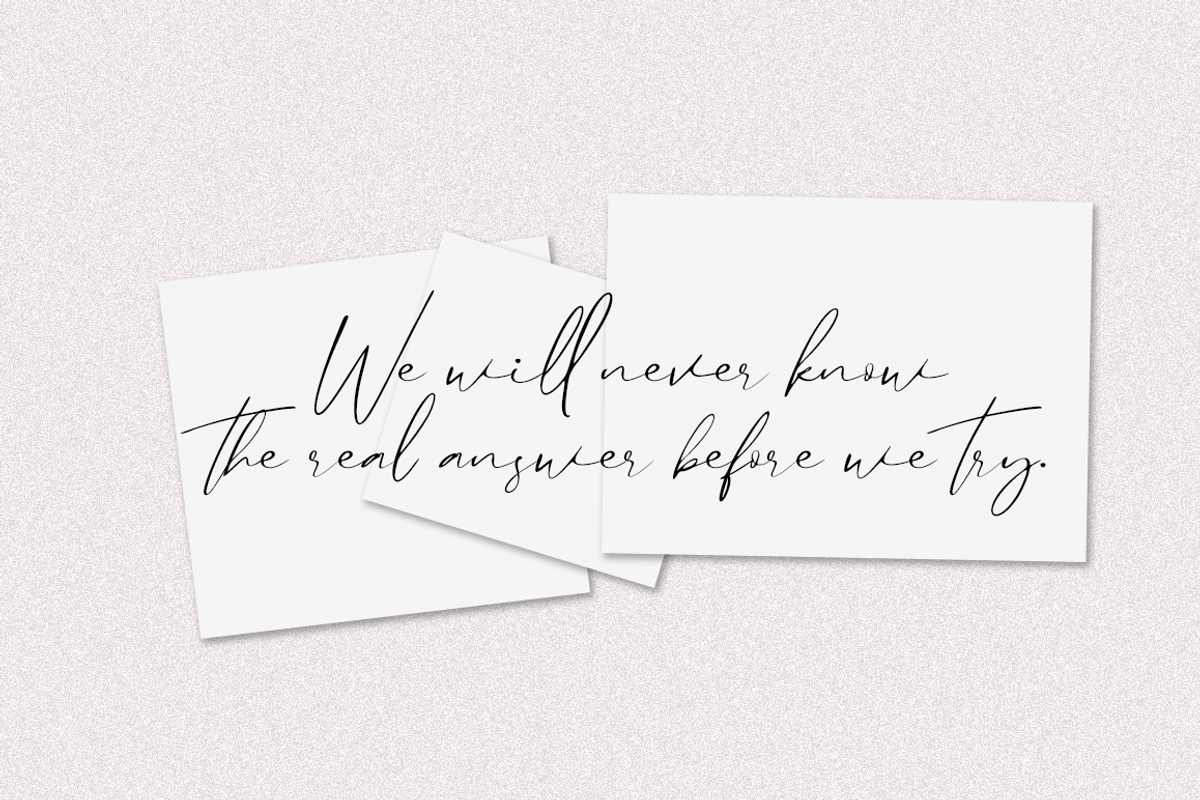 We will never know
the real answer before we try.